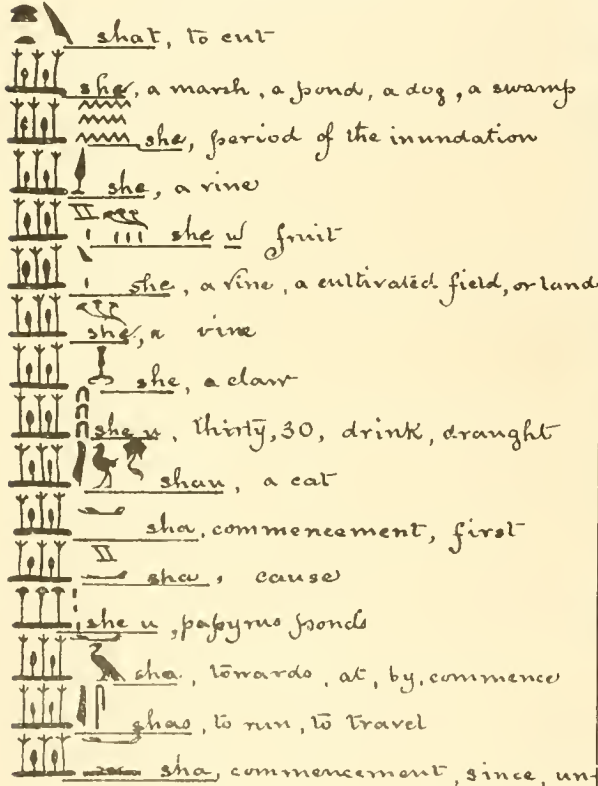 shat, to cut
she, a marsh, a pond, a dog, a swamp
she, period of the inundation
she, a vine
she w fruit
she, a vine, a cultivated field, or land
she, a vine
she, a claw
she u, thirty, 30, drink, draught
shau, a cat
sha, commencement, first
sha, cause
she u, papyrus ponds
sha, towards, at, by, commence
shas, to run, to travel
sha, commencement, since, un-